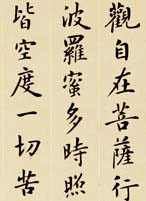 觀自在菩薩行
波羅蜜多時照
皆空度一切苦